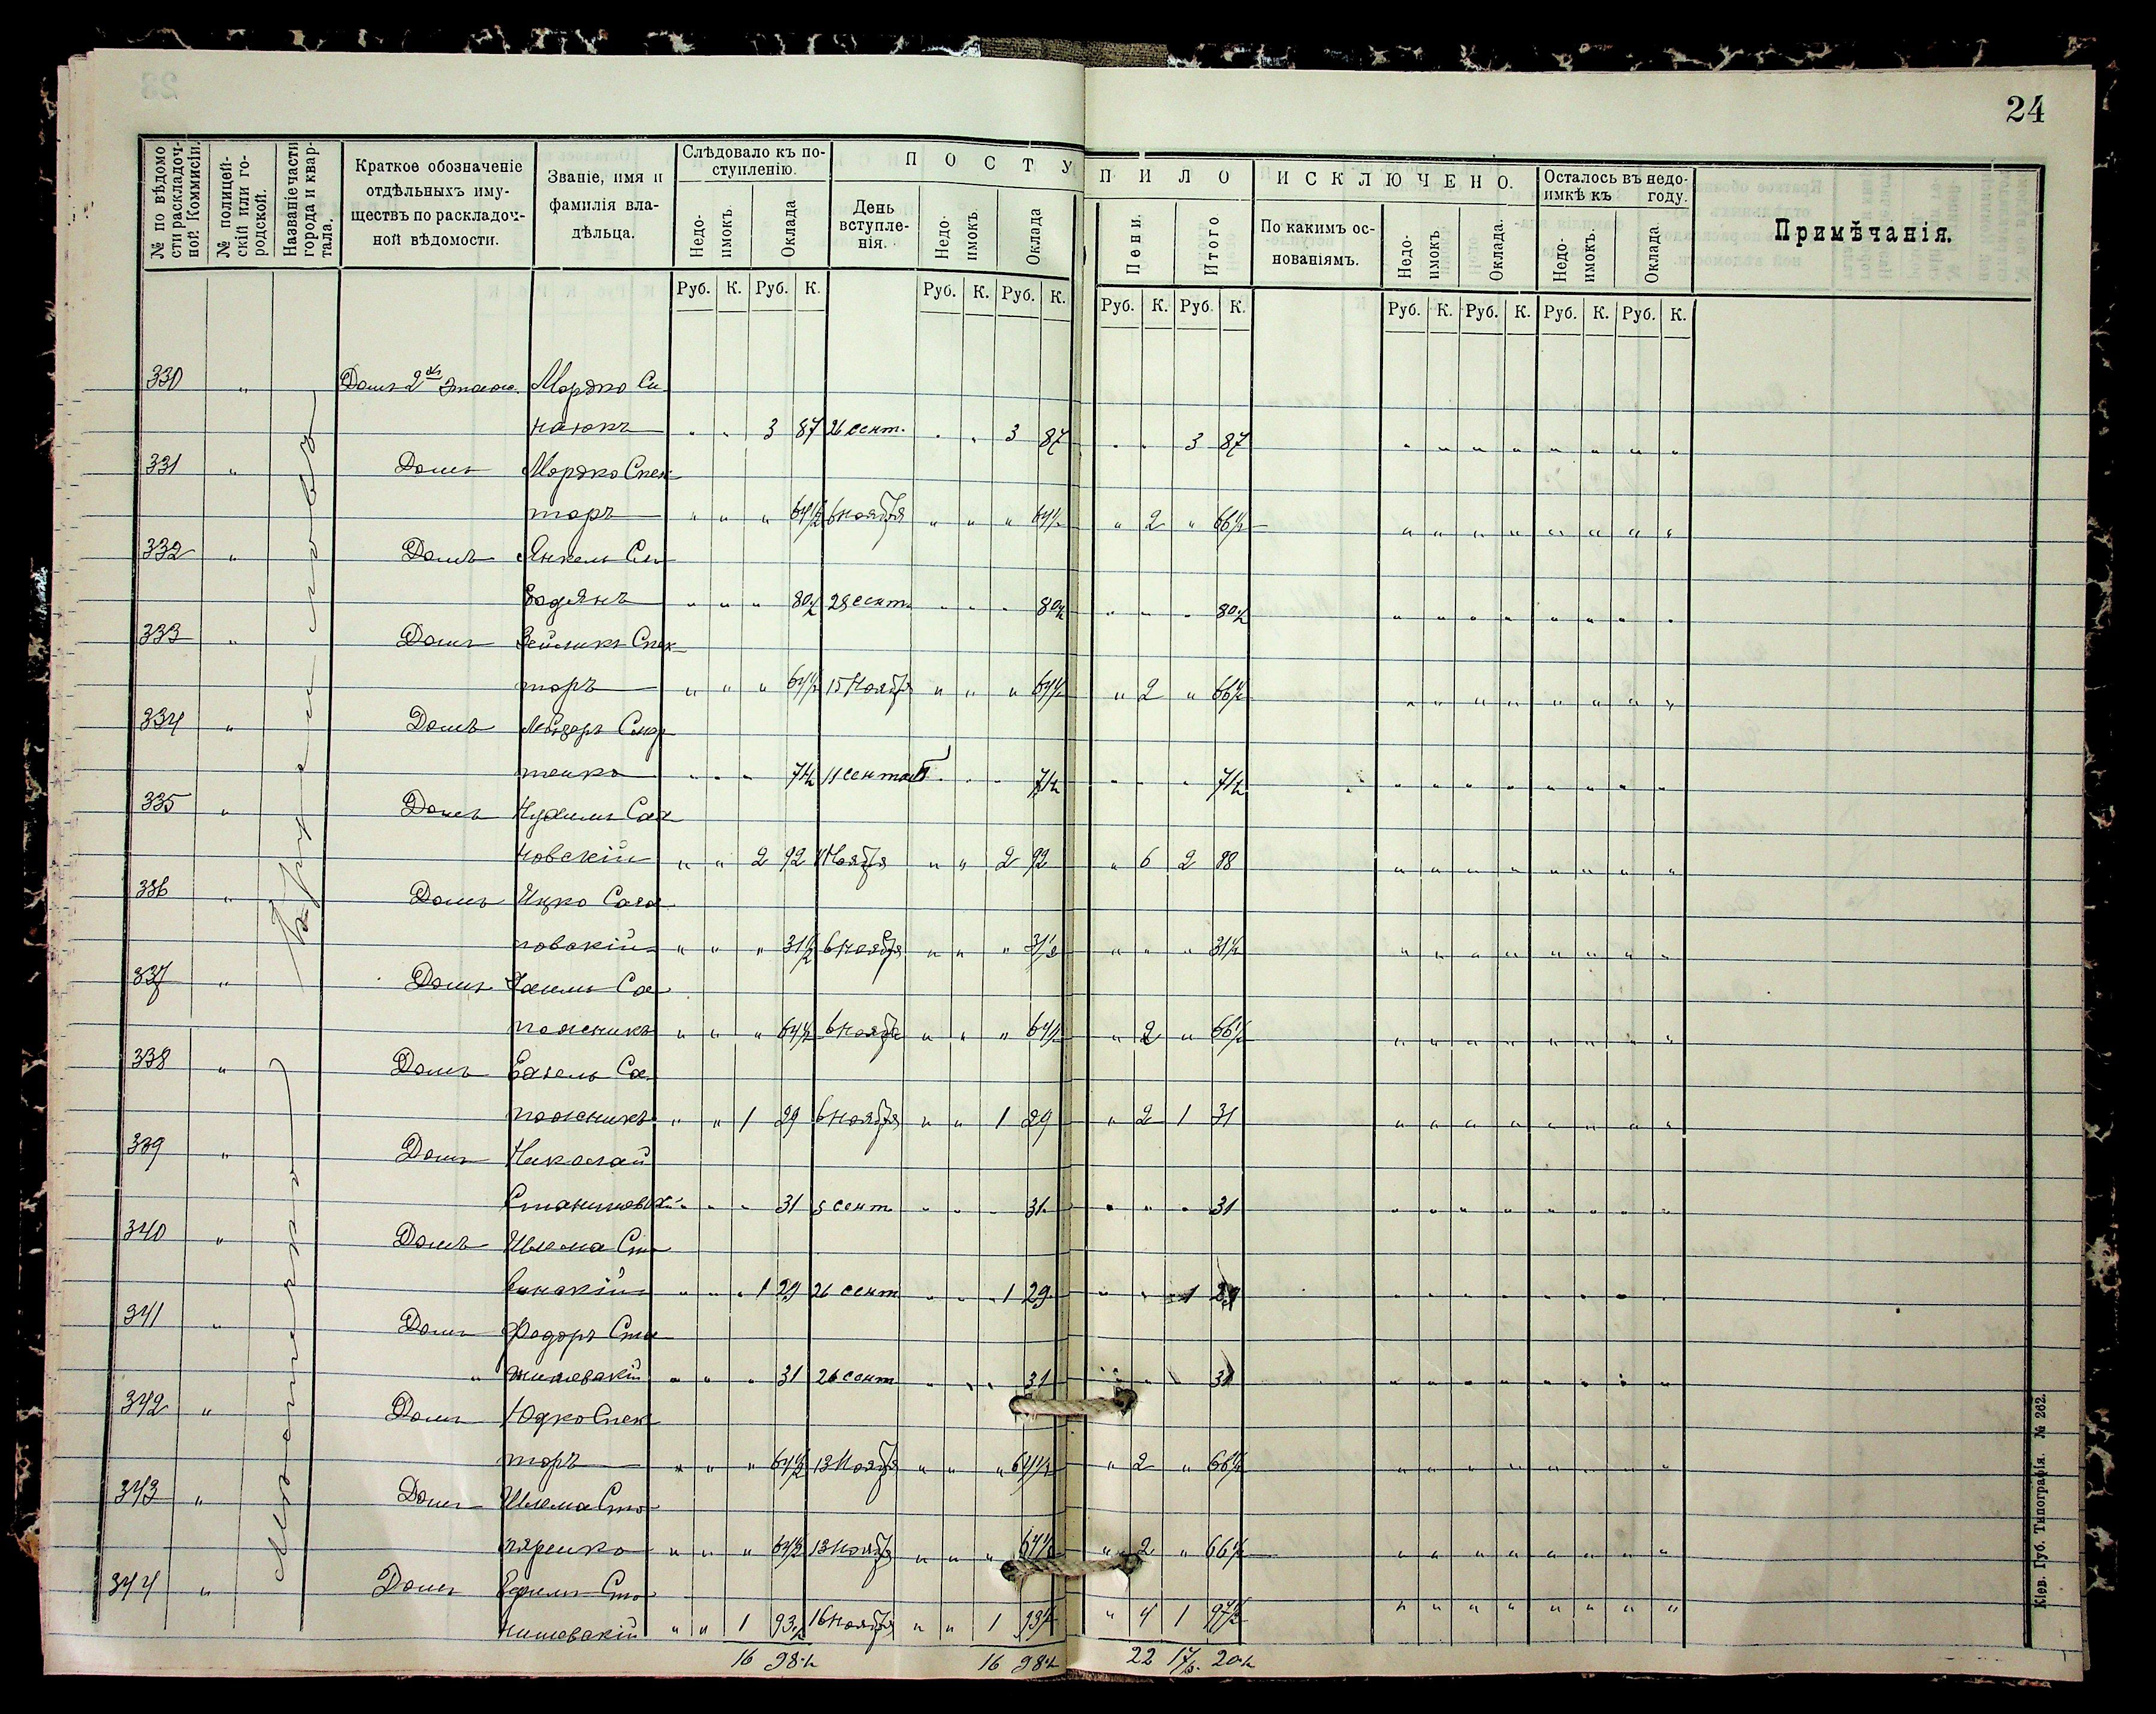 24
№ по вѣдомо
сти раскладоч-
ной Коммисіи.
№ полицей-
скій или го-
родской.
Названіе части
города и квар-
тала.
Краткое обозначеніе
отдѣльныхъ иму-
ществъ по раскладоч-
ной вѣдомости.
Званіе, имя и
фамилія вла-
дѣльца.
Слѣдовало къ по-
ступленію.
Недо-
имокъ.
Оклада
П О С Т У П И Л О
День
вступле-
нія.
Недо-
имокъ.
Оклада
Пени.
Итого
И С К Л Ю Ч Е Н О.
По какимъ ос-
нованіямъ.
Недо-
имокъ
Оклада.
Осталось въ недо-
имкѣ къ году.
Недо-
имокъ.
Оклада.
Примѣчанія.
Руб. К. Руб. К. Руб. К. Руб. К. Руб. К. Руб. К. Руб. К. Руб. К. Руб. К. Руб. К.
330 " Домъ 2хъ этаж. Мордко Си-
наюкъ " " 3 87 26 сент. " " 3 87 " " 3 87 " " " " " " " "
331 " Домъ Мордко Спек-
торъ " " " 64½ 6 ноября " " " 64½ " 2 " 66½ " " " " " " " "
332 " Домъ Янкель Сло-
бодянъ " " " 80½ 28 сент. " " " 80½ " " " 80½ " " " " " " " "
333 " Домъ Зейликъ Спек-
торъ " " " 64½ 15 Ноября " " " 64½ " 2 " 66½ " " " " " " " "
334 " Домъ
тенко " " " 71½ 11 сентяб " " " 71½ " " " 71½ " " " " " " " "
335 " Домъ Нухимъ Сад-
новскій " " 2 92 Ноября " " 2 92 " 6 2 98 " " " " " " " "
336 " Домъ Ицко Сага-
новскій " " " 31½ 6 Ноября " " " 31½ " " " 31½ " " " " " " " "
337 " Домъ Хаимъ Са-
пожникъ " " " 64½ 6 Ноября " " " 64½ " 2 " 66½ " " " " " " " "
338 " Домъ Са-
пожникъ " " 1 29 6 Ноября " " 1 29 " 2 1 31 " " " " " " " "
339 " Домъ Николай
Станишевскій " " " 31 5 сент. " " " 31 " " " 31 " " " " " " " "
340 " Домъ Ивлема Сла-
винскій " " 1 29 26 сент " " 1 29 " " 1 29 " " " " " " " "
341 " Домъ Федоръ Ста-
нишевскій " " " 31 26 сент " " " 31 " " " 31 " " " " " " " "
342 " Домъ Юдко Спек-
торъ " " " 64½ 13 Ноября " " " 64½ " 2 " 66½ " " " " " " " "
343 " Домъ Ивлема Сто-
ляренко " " " 64½ 13 Ноября " " " 64½ " 2 " 66½ " " " " " " " "
344 " Домъ Ефимъ Ста-
нишевскій " " 1 93½ 16 Ноября " " 1 93½ " 4 1 97½ " " " " " " " "
16 98½ 16 98½ 22 17р. 20½
Кіев. Губ. Типографія. № 262.